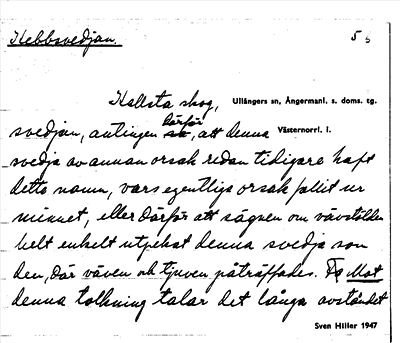 Kebbsvedjan. 5 6
Kallsta skog, Ullångers sn, Ångermanl. s. doms. tg.
därför
svedjan, antingen så, att denna Västernorrl. l.
svedja av annan orsak redan tidigare haft
detta namn, vars egentliga orsak fallit ur
minnet, eller därför att sägnen om vävstölden
helt enkelt utpekat denna svedja som
den, där väven och tjuven påträffades. Mot
denna tolkning talar det långa avståndet
Sven Hiller 1947